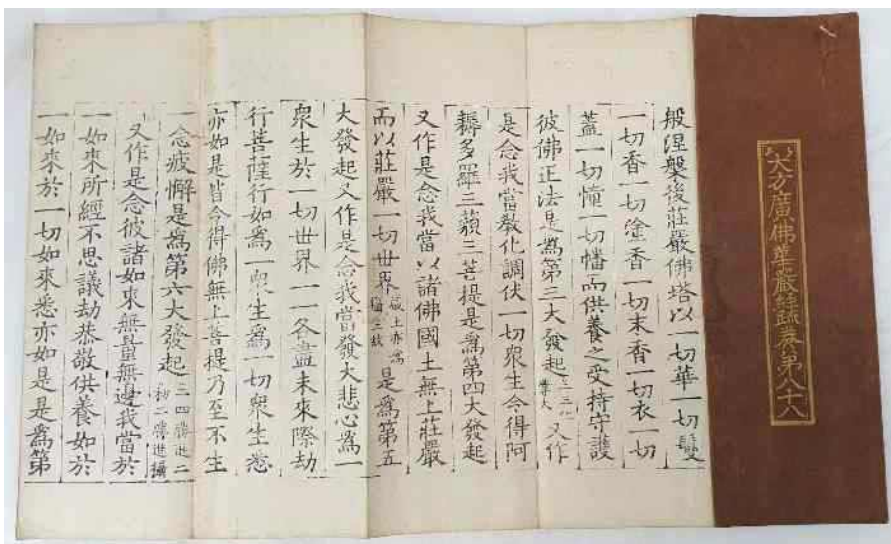 大方廣佛華嚴經疏卷第八十八
般涅槃後莊嚴佛塔以一切華一切鬘
一切香一切塗香一切末香一切衣一切
蓋一切幢一切幡而供養之受持守護
彼佛正法是爲第三大發起 又作
是念我當教化調伏一切衆生令得阿
耨多羅三藐三菩提是爲第四大發起
又作是念我當以諸佛國土無上莊嚴
而以莊嚴一切世界嚴土亦爲 是爲第五
大發起又作是念我當發大悲心爲一
衆生於一切世界一一各盡未來際劫
行菩薩行如爲一衆生爲一切衆生悉
亦如是皆令得佛無上菩提乃至不生
一念疲懈是爲第六大發起三四勝進二初二勝進攝
又作是念彼諸如來無量無邊我當於
一如來所經不思議劫恭敬供養如於
一如來於一切如來悉亦如是是爲第